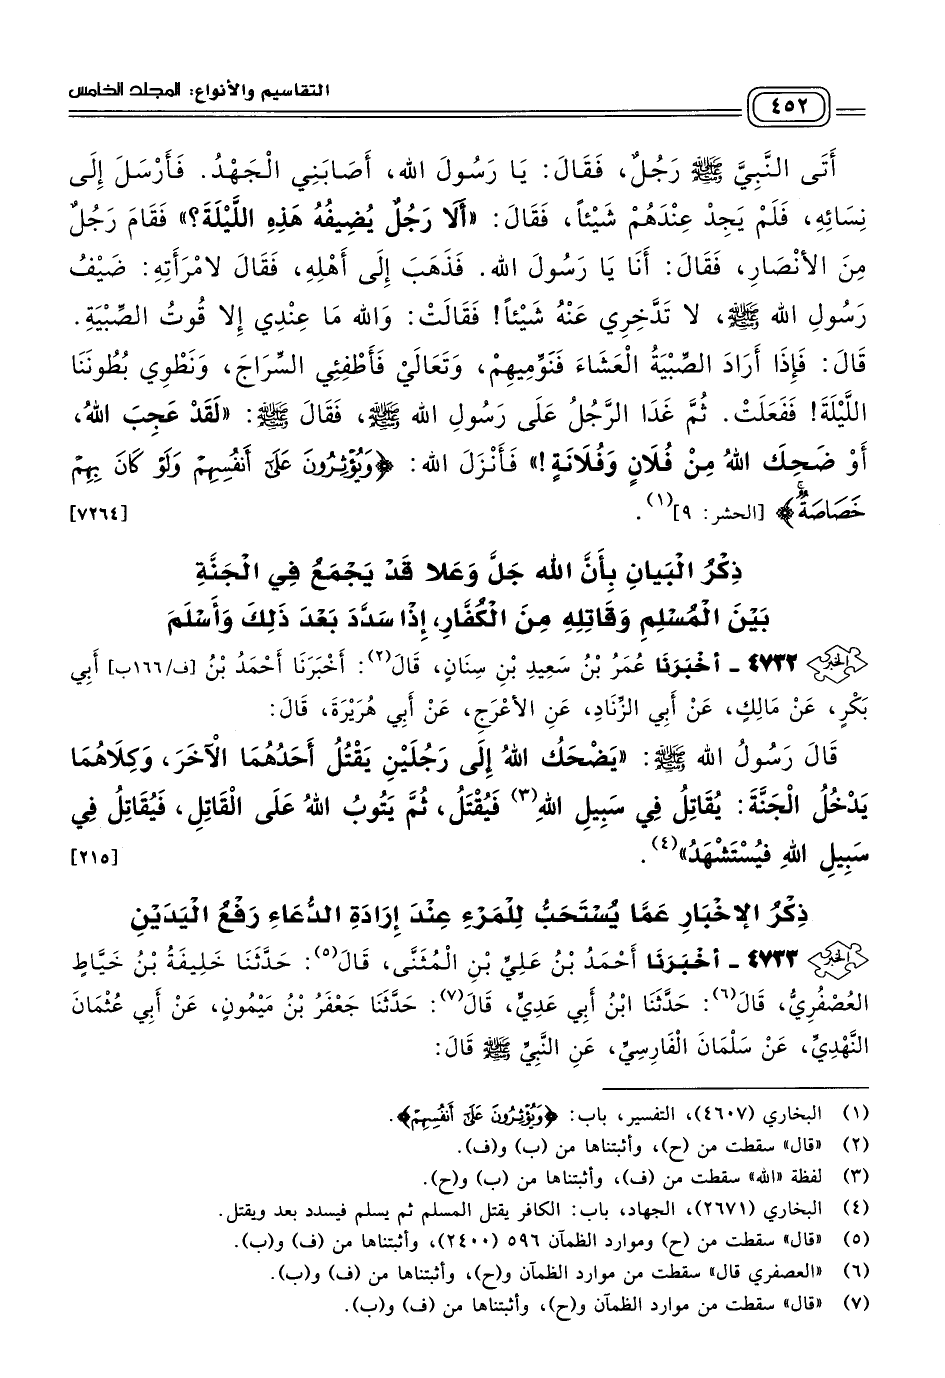 التقاسيم والأنواع: المجلد الخامس
٤٥٢
أَتَى النَّبِيَّ ﷺ رَجُلٌ، فَقَالَ: يَا رَسُولَ الله، أَصَابَنِي الْجَهْدُ. فَأَرْسَلَ إِلَى
نِسَائِهِ، فَلَمْ يَجِدْ عِنْدَهُمْ شَيْئاً، فَقَالَ: «أَلَا رَجُلٌ يُضِيفُهُ هَذِهِ اللَّيْلَةَ؟» فَقَامَ رَجُلٌ
مِنَ الأَنْصَارِ، فَقَالَ: أَنَا يَا رَسُولَ الله. فَذَهَبَ إِلَى أَهْلِهِ، فَقَالَ لامْرَأَتِهِ: ضَيْفُ
رَسُولِ الله ﷺ، لا تَدَّخِرِي عَنْهُ شَيْئاً! فَقَالَتْ: وَالله مَا عِنْدِي إِلا قُوتُ الصِّبْيَةِ.
قَالَ: فَإِذَا أَرَادَ الصِّبْيَةُ الْعَشَاءَ فَنَوِّمِيهِمْ، وَتَعَالَيْ فَأَطْفِئِي السِّرَاجَ، وَنَطْوِي بُطُونَنَا
اللَّيْلَةَ! فَفَعَلَتْ. ثُمَّ غَدَا الرَّجُلُ عَلَى رَسُولِ الله ﷺ، فَقَالَ ﷺ: «لَقَدْ عَجِبَ اللهُ،
أَوْ ضَحِكَ اللهُ مِنْ فُلَانٍ وَفُلَانَةٍ!» فَأَنْزَلَ الله: ﴿وَيُؤْثِرُونَ عَلَىٰ أَنفُسِهِمْ وَلَوْ كَانَ بِهِمْ
خَصَاصَةٌ﴾ [الحشر: ٩](١). [٧٢٦٤]
ذِكْرُ الْبَيَانِ بِأَنَّ الله جَلَّ وَعَلا قَدْ يَجْمَعُ فِي الْجَنَّةِ
بَيْنَ الْمُسْلِمِ وَقَاتِلِهِ مِنَ الْكُفَّارِ، إِذَا سَدَّدَ بَعْدَ ذَلِكَ وَأَسْلَمَ
٤٧٣٢ - أَخْبَرَنَا عُمَرُ بْنُ سَعِيدِ بْنِ سِنَانٍ، قَالَ(٢): أَخْبَرَنَا أَحْمَدُ بْنُ [ف/١٦٦ب] أَبِي
بَكْرٍ، عَنْ مَالِكٍ، عَنْ أَبِي الزِّنَادِ، عَنِ الأَعْرَجِ، عَنْ أَبِي هُرَيْرَةَ، قَالَ:
قَالَ رَسُولُ الله ﷺ: «يَضْحَكُ اللهُ إِلَى رَجُلَيْنِ يَقْتُلُ أَحَدُهُمَا الْآخَرَ، وَكِلَاهُمَا
يَدْخُلُ الْجَنَّةَ: يُقَاتِلُ فِي سَبِيلِ اللهِ(٣) فَيُقْتَلُ، ثُمَّ يَتُوبُ اللهُ عَلَى الْقَاتِلِ، فَيُقَاتِلُ فِي
سَبِيلِ اللهِ فَيُسْتَشْهَدُ»(٤). [٢١٥]
ذِكْرُ الإخْبَارِ عَمَّا يُسْتَحَبُّ لِلْمَرْءِ عِنْدَ إِرَادَةِ الدُّعَاءِ رَفْعُ الْيَدَيْنِ
٤٧٣٣ - أَخْبَرَنَا أَحْمَدُ بْنُ عَلِيِّ بْنِ الْمُثَنَّى، قَالَ(٥): حَدَّثَنَا خَلِيفَةُ بْنُ خَيَّاطٍ
الْعُصْفُرِيُّ، قَالَ(٦): حَدَّثَنَا ابْنُ أَبِي عَدِيٍّ، قَالَ(٧): حَدَّثَنَا جَعْفَرُ بْنُ مَيْمُونٍ، عَنْ أَبِي عُثْمَانَ
النَّهْدِيِّ، عَنْ سَلْمَانَ الْفَارِسِيِّ، عَنِ النَّبِيِّ ﷺ قَالَ:
(١) البخاري (٤٦٠٧)، التفسير، باب: ﴿وَيُؤْثِرُونَ عَلَىٰ أَنفُسِهِمْ﴾.
(٢) «قال» سقطت من (ح)، وأثبتناها من (ب) و(ف).
(٣) لفظة «الله» سقطت من (ف)، وأثبتناها من (ب) و(ح).
(٤) البخاري (٢٦٧١)، الجهاد، باب: الكافر يقتل المسلم ثم يسلم فيسدد بعد ويقتل.
(٥) «قال» سقطت من (ح) وموارد الظمآن ٥٩٦ (٢٤٠٠)، وأثبتناها من (ف) و(ب).
(٦) «العصفري قال» سقطت من موارد الظمآن و(ح)، وأثبتناها من (ف) و(ب).
(٧) «قال» سقطت من موارد الظمآن و(ح)، وأثبتناها من (ف) و(ب).